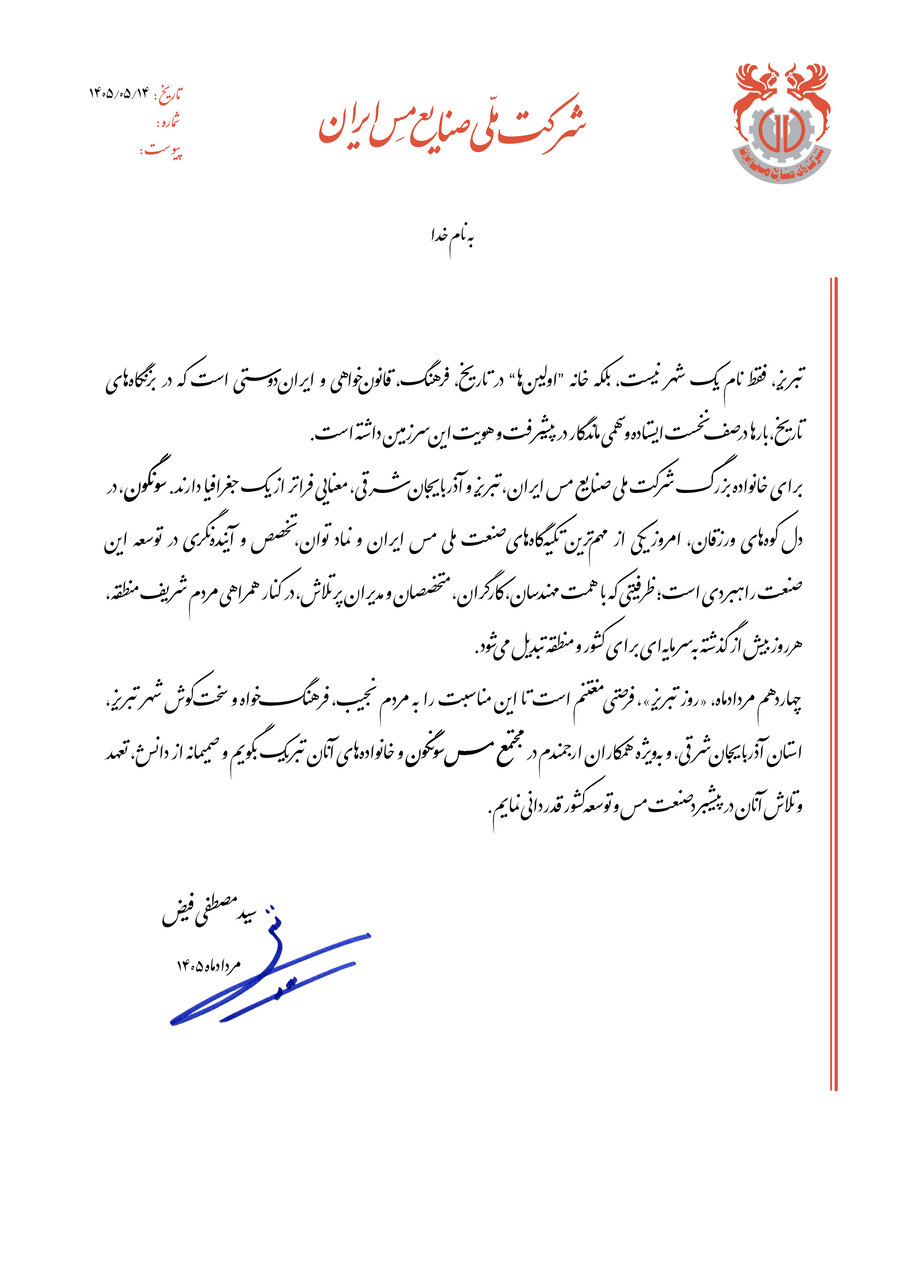 شرکت ملّی صنایع مِس ایران
تاریخ: ۱۴۰۵/۰۵/۱۴
شماره:
پیوست:
شرکت ملی صنایع مس ایران
به نام خدا
تبریز، فقط نام یک شهر نیست، بلکه خانه "اولین‌ها" در تاریخ، فرهنگ، قانون‌خواهی و ایران‌دوستی است که در بزنگاه‌های
تاریخ، بارها در صف نخست ایستاده و سهمی ماندگار در پیشرفت و هویت این سرزمین داشته است.
برای خانواده بزرگ شرکت ملی صنایع مس ایران، تبریز و آذربایجان‌شرقی، معنایی فراتر از یک جغرافیا دارند. سونگون، در
دل کوه‌های ورزقان، امروز یکی از مهم‌ترین تکیه‌گاه‌های صنعت ملی مس ایران و نماد توان، تخصص و آینده‌نگری در توسعه این
صنعت راهبردی است؛ ظرفیتی که با همت مهندسان، کارگران، متخصصان و مدیران پرتلاش، در کنار همراهی مردم شریف منطقه،
هر روز بیش از گذشته به سرمایه‌ای برای کشور و منطقه تبدیل می‌شود.
چهاردهم مردادماه، «روز تبریز»، فرصتی مغتنم است تا این مناسبت را به مردم نجیب، فرهنگ‌خواه و سخت‌کوش شهر تبریز،
استان آذربایجان‌شرقی، و به‌ویژه همکاران ارجمندم در مجتمع مس سونگون و خانواده‌های آنان تبریک بگویم و صمیمانه از دانش، تعهد
و تلاش آنان در پیشبرد صنعت مس و توسعه کشور قدردانی نمایم.
سید مصطفی فیض
مردادماه ۱۴۰۵